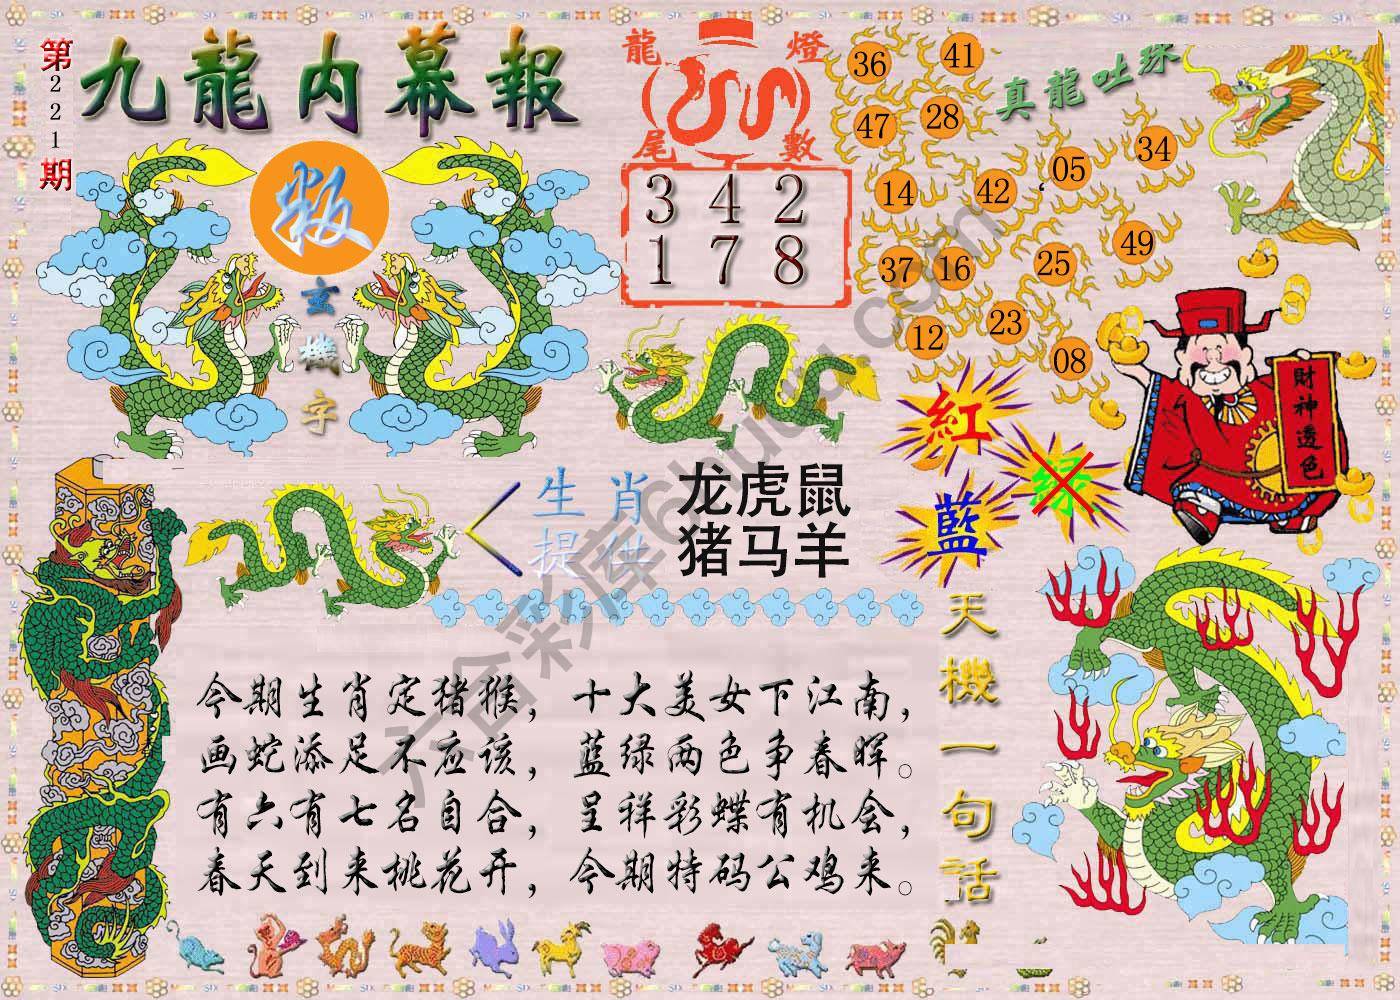 第221期
九龍内幕報
玄機字
龍燈尾數
3 4 2
1 7 8
真龍吐珠
36
41
47
28
14
42
05
34
37
16
25
49
12
23
08
財神透色
紅
绿
藍
生肖提供
龙虎鼠
猪马羊
天機一句話
今期生肖定猪猴，十大美女下江南，
画蛇添足不应该，蓝绿两色争春晖。
有六有七名自合，呈祥彩蝶有机会，
春天到来桃花开，今期特码公鸡来。